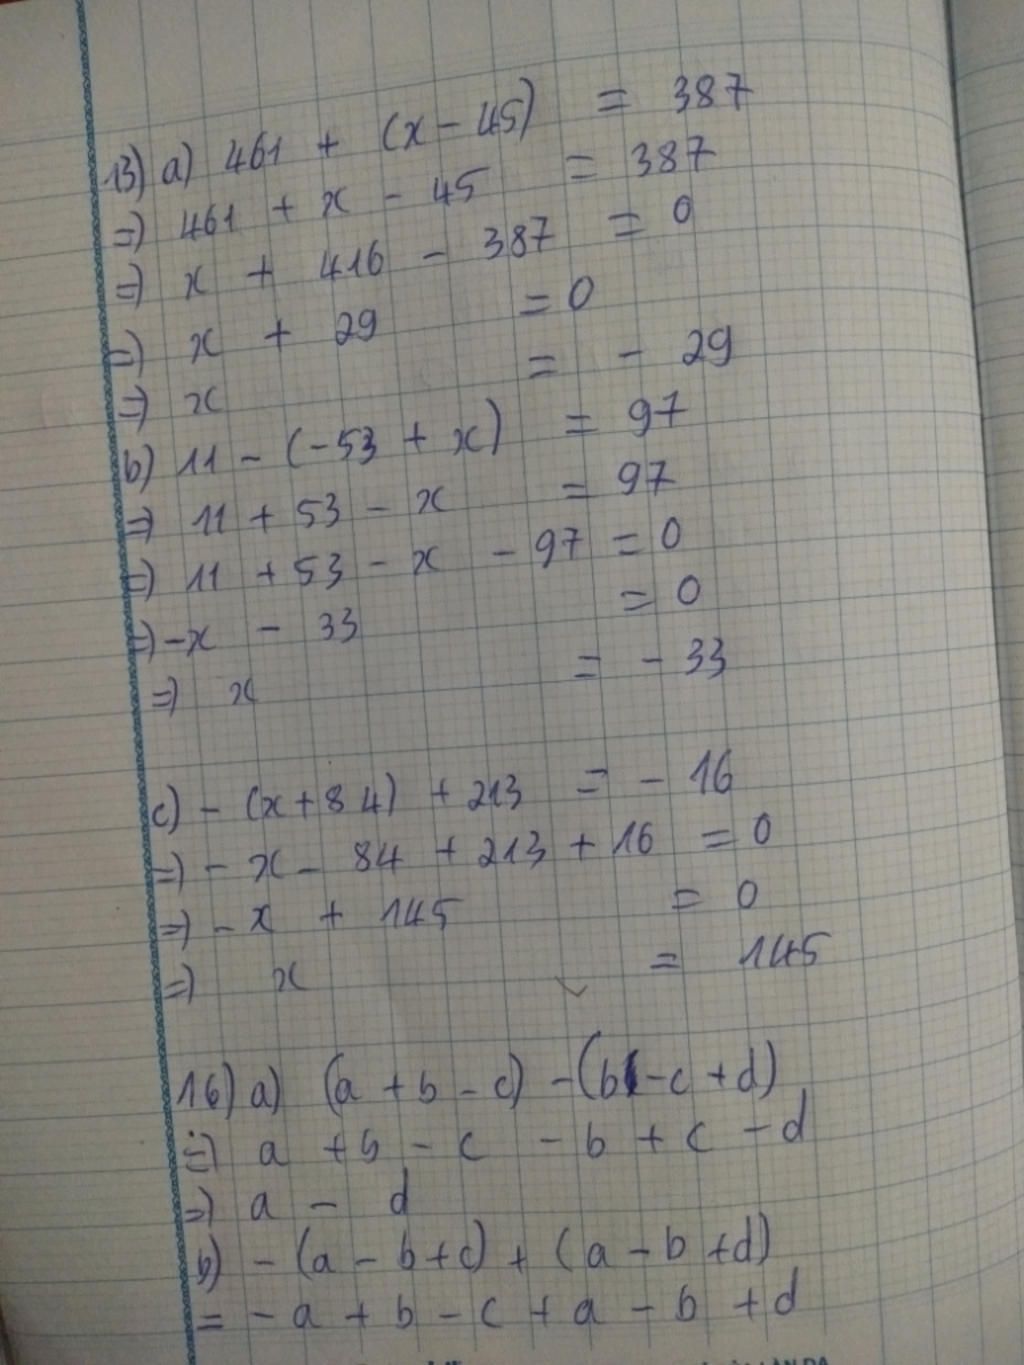 13) a) 461 + (x - 45) = 387
=) 461 + x - 45 = 387
=) x + 416 - 387 = 0
=) x + 29 = 0
=) x = - 29
b) 11 - (-53 + x) = 97
=) 11 + 53 - x = 97
=) 11 + 53 - x - 97 = 0
=) -x - 33 = 0
=) x = - 33
c) - (x + 84) + 213 = - 16
=) - x - 84 + 213 + 16 = 0
=) - x + 145 = 0
=) x = 145
16) a) (a + b - c) - (b - c + d)
=) a + b - c - b + c - d
=) a - d
b) - (a - b + c) + (a - b + d)
= - a + b - c + a - b + d